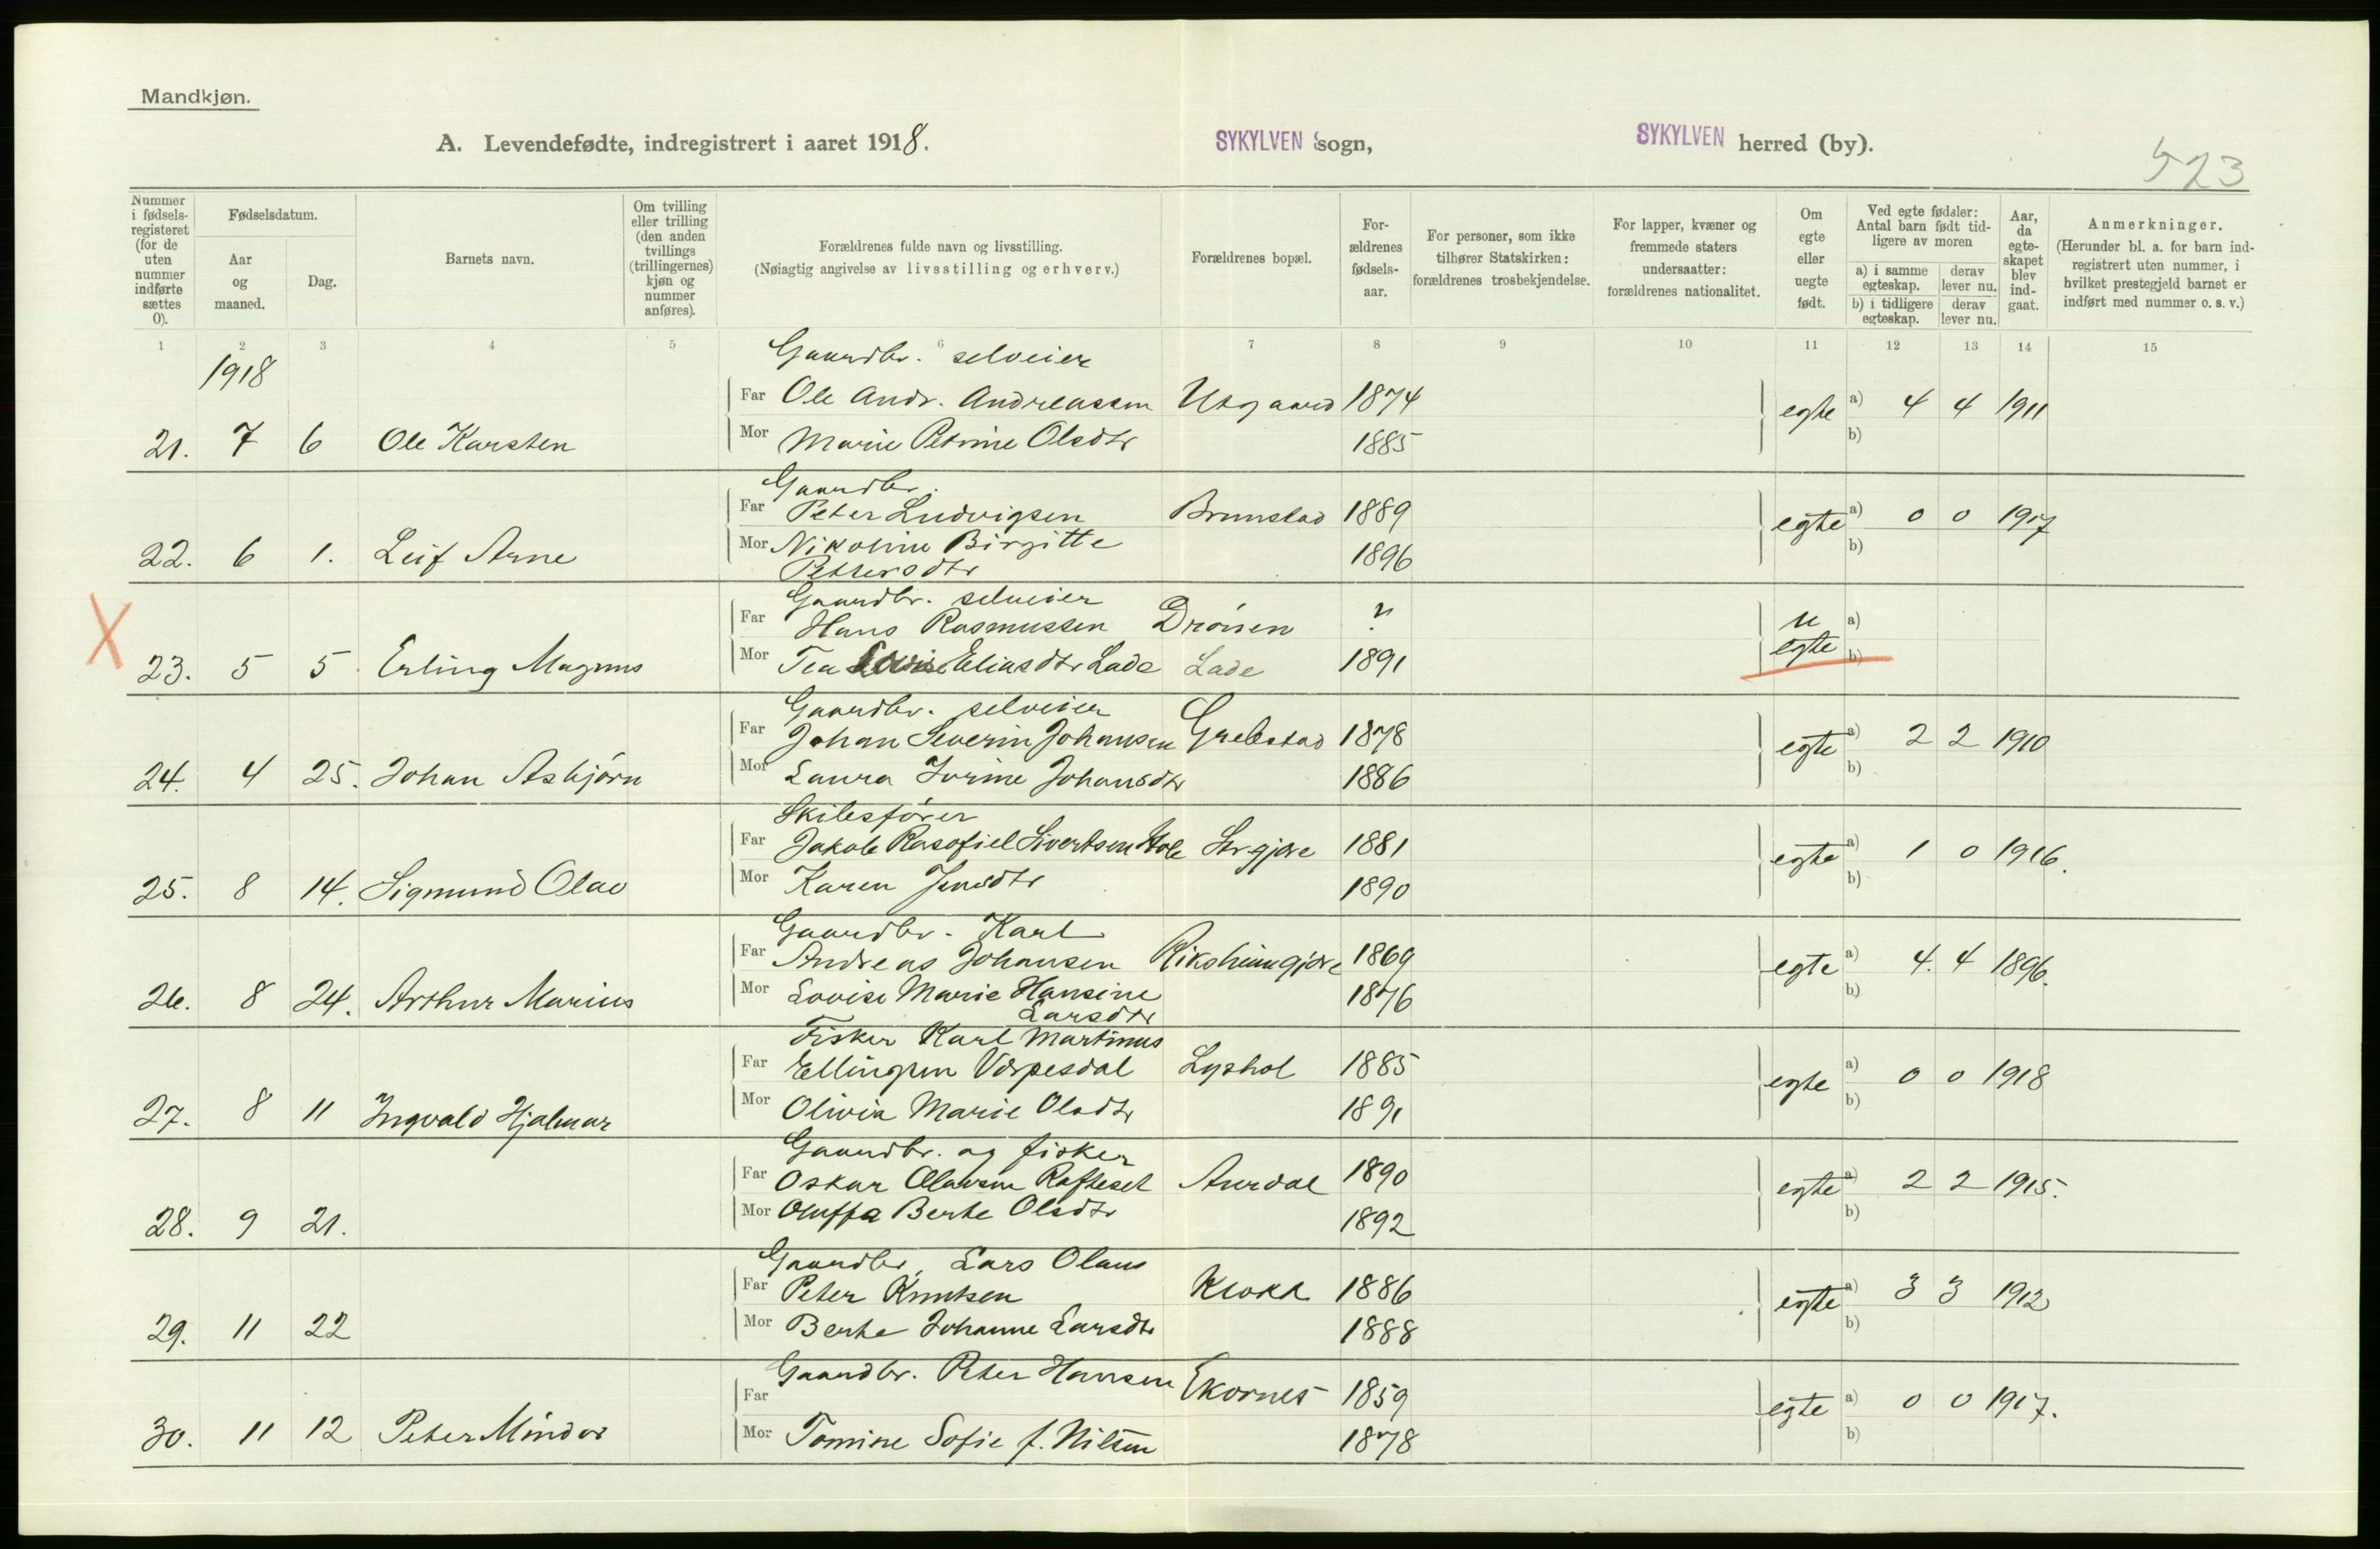 Mandkjøn.
A. Levendefødte, indregistrert i aaret 1918. SYKYLVEN sogn, SYKYLVEN herred (by).
523
Nummer i fødsels-registeret (for de uten nummer indførte sættes 0).
Fødselsdatum.
Aar og maaned.
Dag.
Barnets navn.
Om tvilling eller trilling (den anden tvillings (trillingernes) kjøn og nummer anføres).
Forældrenes fulde navn og livsstilling.
(Nøiagtig angivelse av livsstilling og erhverv.)
Forældrenes bopæl.
For-ældrenes fødsels-aar.
For personer, som ikke tilhører Statskirken: forældrenes trosbekjendelse.
For lapper, kvæner og fremmede staters undersaatter: forældrenes nationalitet.
Om egte eller uegte født.
Ved egte fødsler: Antal barn født tid-ligere av moren
a) i samme egteskap.
derav lever nu.
b) i tidligere egteskap.
derav lever nu.
Aar, da egte-skapet blev ind-gaat.
Anmerkninger.
(Herunder bl. a. for barn ind-registrert uten nummer, i hvilket prestegjeld barnet er indført med nummer o. s. v.)
1 2 3 4 5 6 7 8 9 10 11 12 13 14 15
1918
Gaardbr. selveier
Far Ole Andr. Andreassen Utgaard 1874 egte a) 4 4 1911
21. 7 6 Ole Karsten Mor Marie Petrine Olsdtr 1885 b)
Gaardbr.
Far Peter Ludvigsen Brunstad 1889 egte a) 0 0 1917
22. 6 1. Leif Arne Mor Nikoline Birgitte 1896 b)
Pettersdtr
Gaardbr. selveier
Far Hans Rasmussen Drönen ? u a)
X 23. 5 5 Erling Magnus Mor Tea Eliasdtr Lade Lade 1891 egte b)
Gaardbr. selveier
Far Johan Severin Johansen Grebstad 1878 egte a) 2 2 1910
24. 4 25. Johan Asbjörn Mor Laura Jorine Johansdtr 1886 b)
Skibsförer
Far Jakob Sivertsen Hole 1881 egte a) 1 0 1916.
25. 8 14. Sigmund Olav Mor Karen Jensdtr 1890 b)
Gaardbr. Karl
Far Andreas Johansen Riksheimgjære 1869 egte a) 4. 4 1896.
26. 8 24. Arthur Marius Mor Lovise Marie Hansine 1876 b)
Larsdtr
Fisker Karl Martinus
Far Ellingsen Vörpesdal Lyshol 1885 egte a) 0 0 1918
27. 8 11 Ingvald Hjalmar Mor Olivia Marie Olsdtr 1891 b)
Gaardbr. og fisker
Far Oskar Olavsen Rafteset Aurdal 1890 egte a) 2 2 1915.
28. 9 21. Mor Oluffa Berte Olsdtr 1892 b)
Gaardbr. Lars Olaus
Far Peter Knutsen Klokk 1886 egte a) 3 3 1912
29. 11 22 Mor Berte Johanne Larsdtr 1888 b)
Gaardbr. Peter Hansen Ekornes 1859
Far egte a) 0 0 1917.
30. 11 12 Peter Mindor Mor Tomine Sofie f. Nilsen 1878 b)